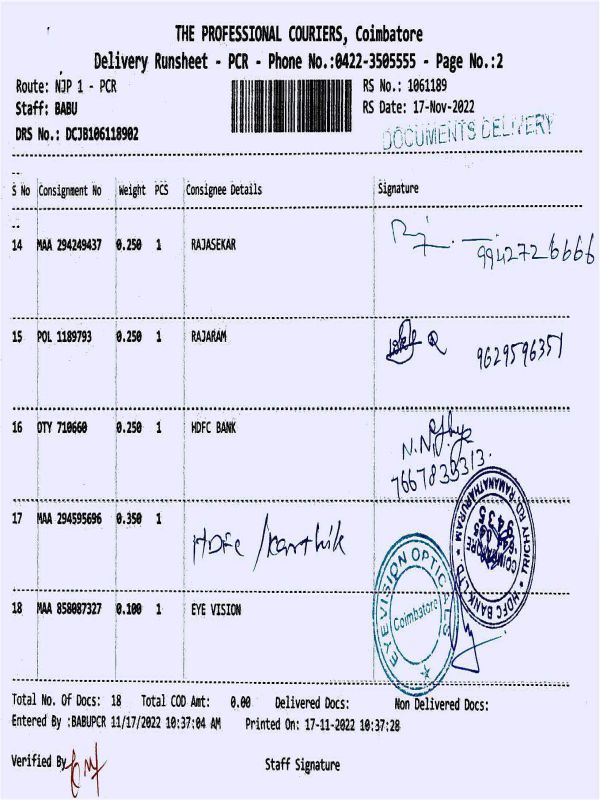 THE PROFESSIONAL COURIERS, Coimbatore
Delivery Runsheet - PCR - Phone No.:0422-3505555 - Page No.:2
Route: NJP 1 - PCR
RS No.: 1061189
Staff: BABU
RS Date: 17-Nov-2022
DRS No.: DCJB106118902
DOCUMENTS DELIVERY
S No Consignment No Weight PCS Consignee Details Signature
14 MAA 294249437 0.250 1 RAJASEKAR
9942726666
15 POL 1189793 0.250 1 RAJARAM
9629596351
16 OTY 710660 0.250 1 HDFC BANK
7667833313.
17 MAA 294595696 0.350 1 HDFC /Karthik
HDFC BANK LTD * TRICHY RD, RAMANATHAPURAM *
COIMBATORE
18 MAA 858087327 0.100 1 EYE VISION
EYEVISION OPTICALS
Coimbatore
Total No. Of Docs: 18 Total COD Amt: 0.00 Delivered Docs: Non Delivered Docs:
Entered By :BABUPCR 11/17/2022 10:37:04 AM Printed On: 17-11-2022 10:37:28
Verified By
Staff Signature